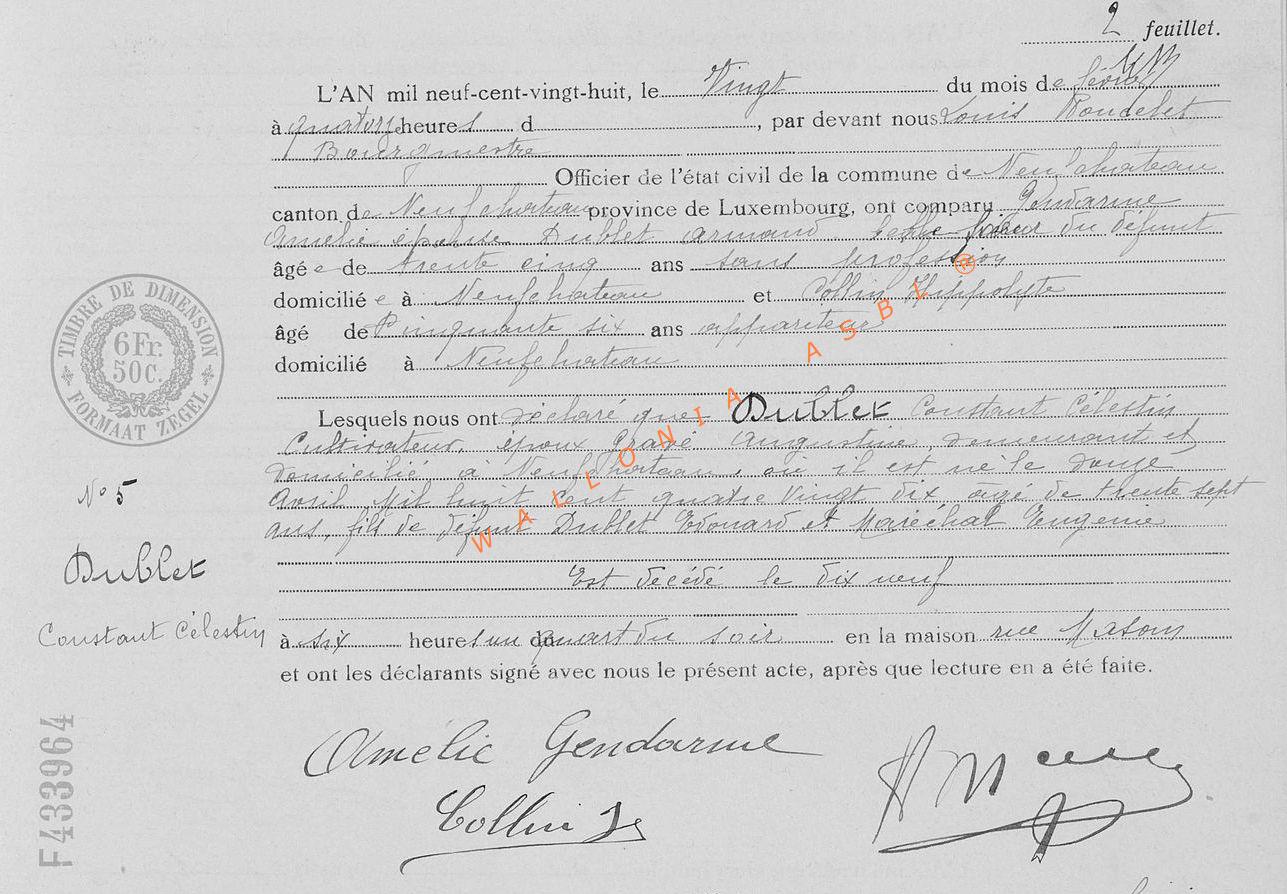 2 feuillet.
L'AN mil neuf-cent-vingt-huit, le Vingt du mois de février
à quatorze heures d , par devant nous Louis Rondelet
Bourgmestre
Officier de l'état civil de la commune de Neufchateau
canton de Neufchateau province de Luxembourg, ont comparu Gendarme
Amélie épouse Dublet Armand, belle soeur du défunt
âgée de trente cinq ans sans profession
domiciliée à Neufchateau et Collin Hippolyte
âgé de Cinquante six ans appariteur
domicilié à Neufchateau
Lesquels nous ont déclaré que Dublet Constant Célestin
Cultivateur, époux Gravé Augustine, demeurant et
domicilié à Neufchateau, où il est né le douze
Avril Mil huit Cent quatre Vingt dix âgé de trente sept
ans, fils de défunt Dublet Edouard et Maréchal Eugénie
Est décédé le dix neuf
à six heures un quart du soir en la maison rue
et ont les déclarants signé avec nous le présent acte, après que lecture en a été faite.
Amélie Gendarme
Collin
TIMBRE DE DIMENSION
6Fr.
50C.
FORMAAT ZEGEL
N° 5
Dublet
Constant Célestin
F433964
WALLONIA ASBL ®